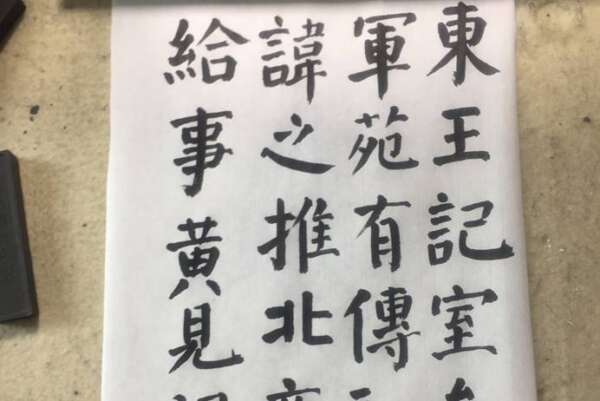 東王記室
軍苑有傳
諱之推北齊
給事黃見